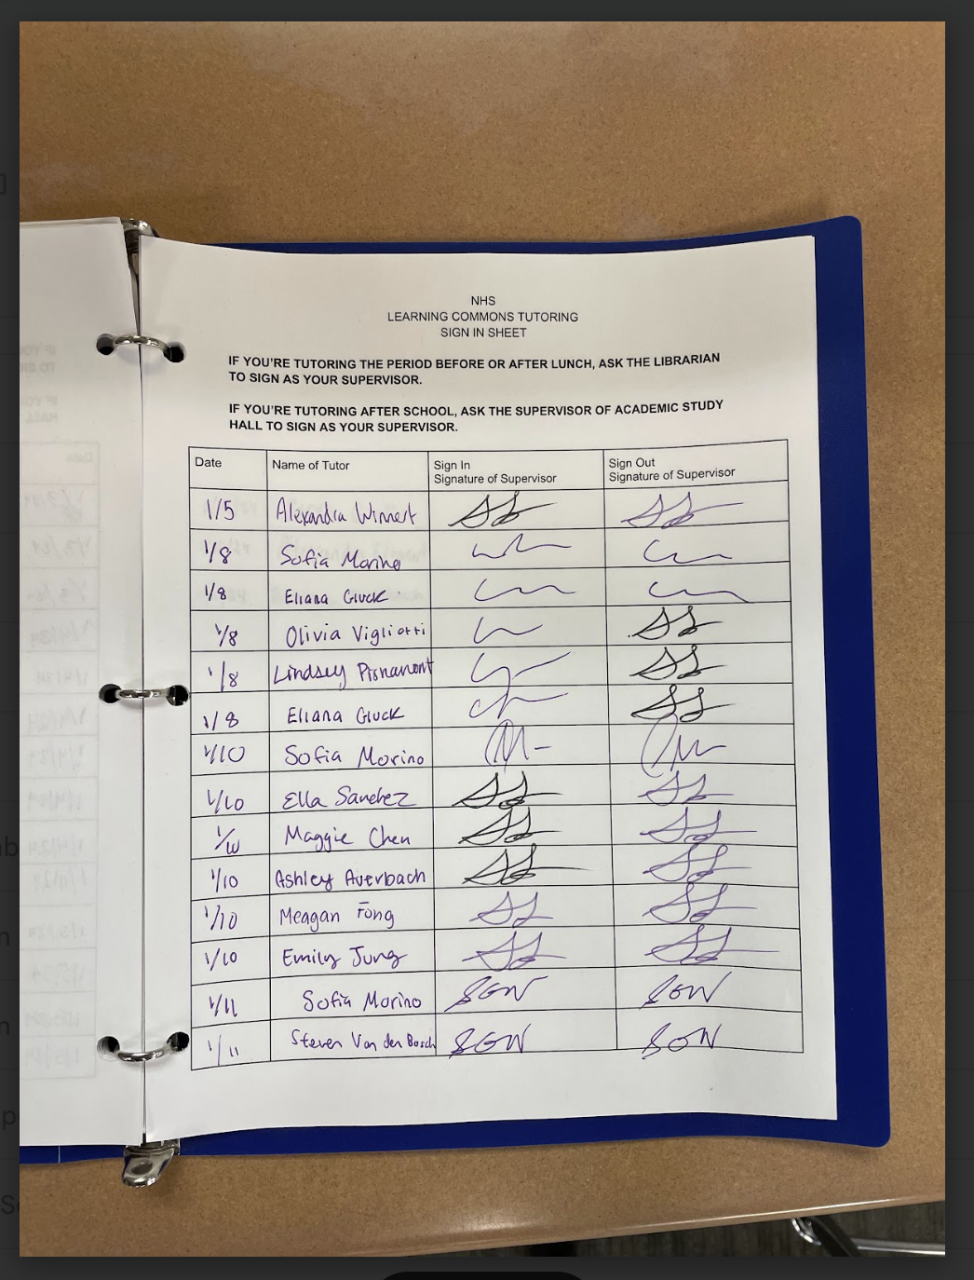 NHS
LEARNING COMMONS TUTORING
SIGN IN SHEET
IF YOU'RE TUTORING THE PERIOD BEFORE OR AFTER LUNCH, ASK THE LIBRARIAN
TO SIGN AS YOUR SUPERVISOR.
IF YOU'RE TUTORING AFTER SCHOOL, ASK THE SUPERVISOR OF ACADEMIC STUDY
HALL TO SIGN AS YOUR SUPERVISOR.
Date Name of Tutor Sign In Signature of Supervisor Sign Out Signature of Supervisor
1/5 Alexandra Winnert
1/8 Sofia Morino
1/8 Eliana Gluck
1/8 Olivia Vigliotti
1/8 Lindsey
1/8 Eliana Gluck
1/10 Sofia Morino
1/10 Ella Sanchez
1/10 Maggie Chen
1/10 Ashley Auerbach
1/10 Meagan Fong
1/10 Emily Jung
1/11 Sofia Morino SGW SGW
1/11 Steven Van den Bosch SGW SGW